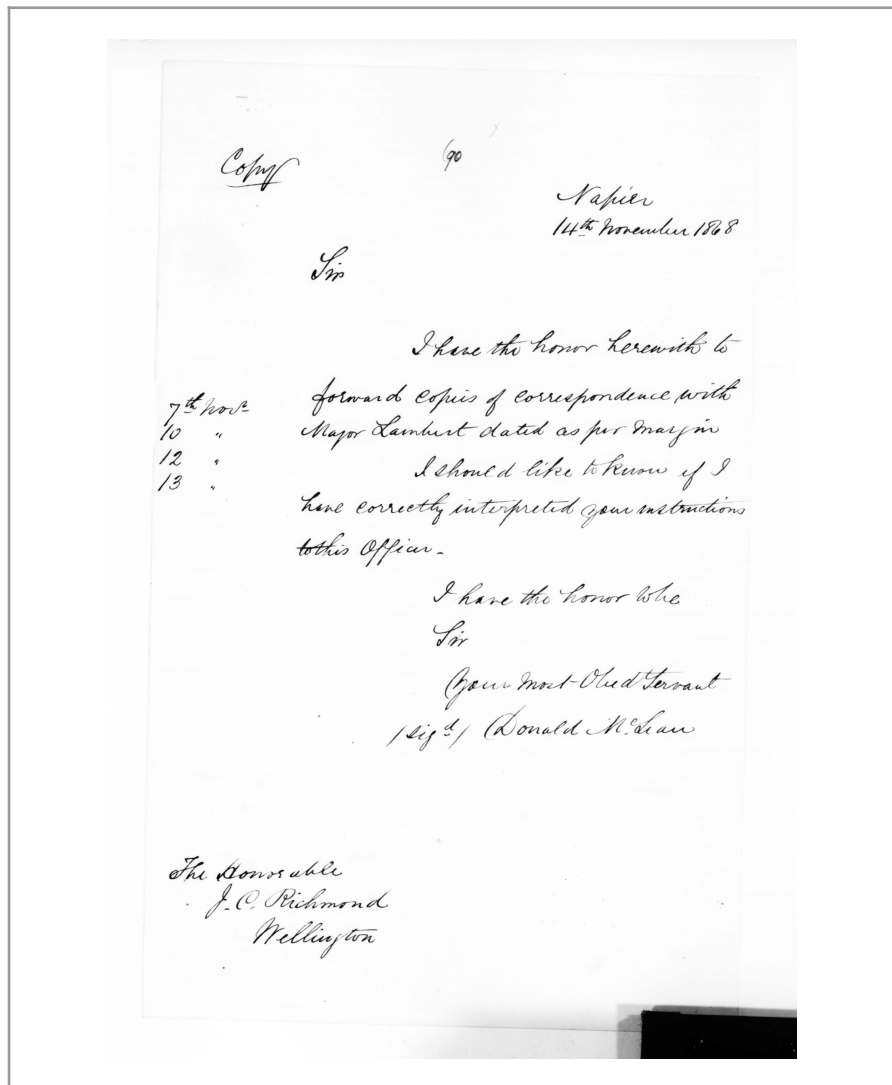 Copy
90
Napier
14th November 1868
Sir
I have the honor herewith to
forward copies of correspondence with
7th Novr
Major Lambert dated as per Margin
10 "
12 "
I should like to know if I
13 "
have correctly interpreted your instructions
to this Officer.
I have the honor to be
Sir
Your Most Obedt Servant
/sigd/ Donald McLean
The Honorable
J. C. Richmond
Wellington